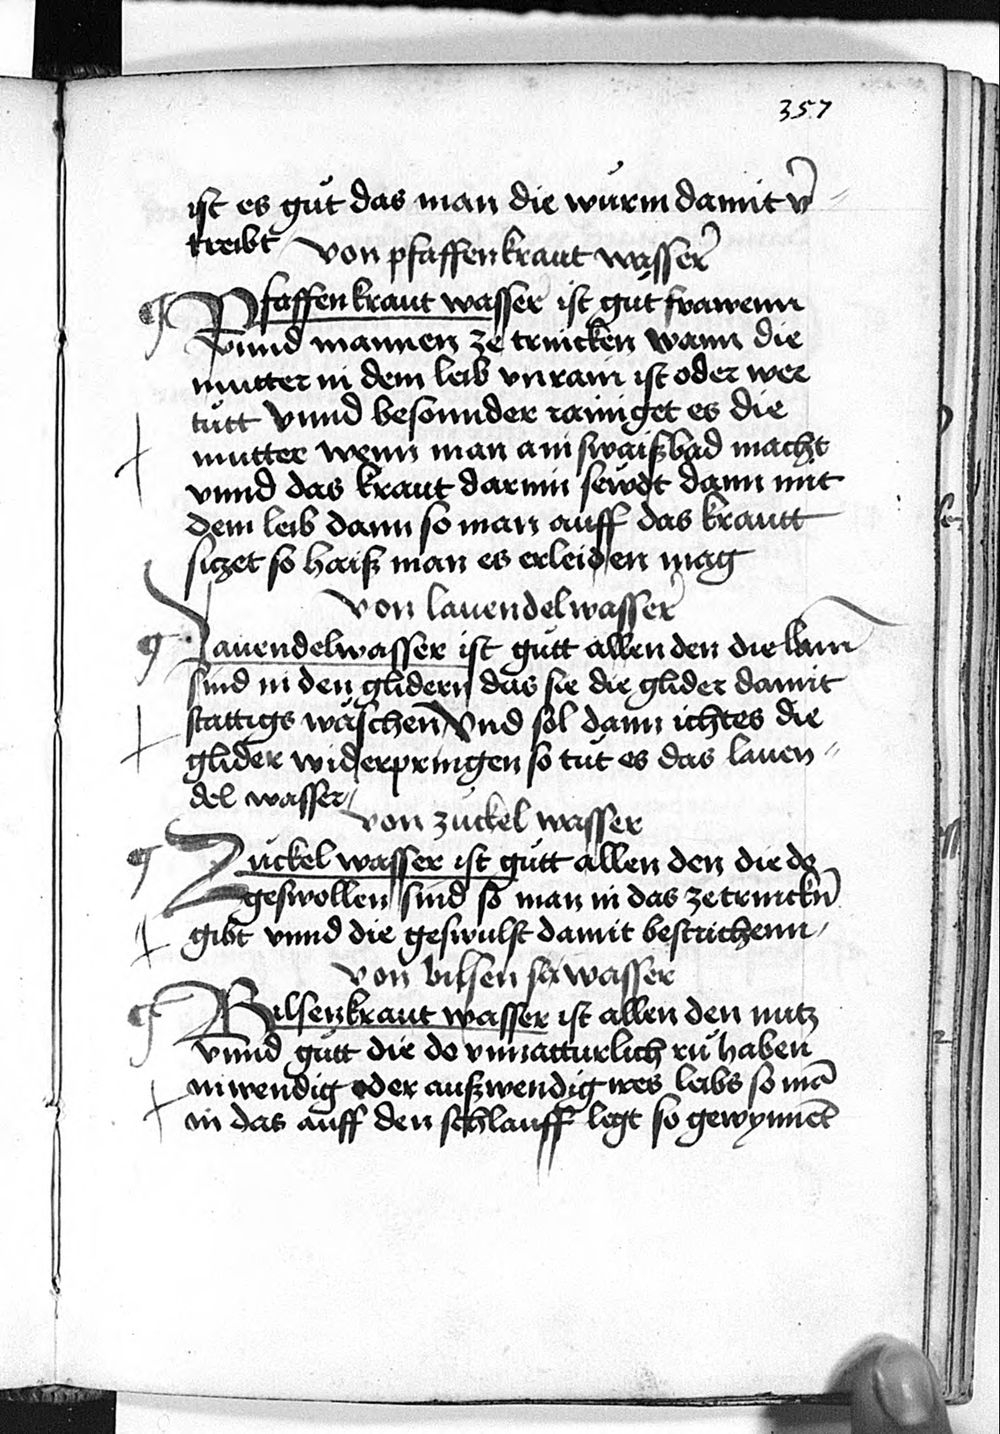 357
ist es gůt das man die wurm damit v̄
treibt
von pfaffenkraut wasser
Pfaffenkraut wasser ist gůt frawenn
vnnd mannen ze trincken wann die
mutter in dem leib vnrain ist oder wee
tůtt vnnd besonnder rainiget es die
mutter wenn man ain swaißbad macht
vnnd das kraut darinn sewdt dann mit
dem leib dann so man auff das krautt
siczet so haiß man es erleiden mag
von lauendelwasser
Lauendelwasser ist gůtt allen den die lam
sind in den glidern das sie die glider damit
stattigs wäschen Vnd sol dann ichtes die
glider widerpringen so tůt es das lauen
del wasser
von zuckel wasser
Zuckel wasser ist gůtt allen den die do
geswollen sind so man in das ze trinckn̄
gibt vnnd die geswulst damit bestrichenn
von bilsen wasser
Bilsenkraut wasser ist allen den nutz
vnnd gůtt die do vnnatturlich rů haben
inwendig oder außwendig ires leibs so mā
in das auff den schlauff legt so gewynnet